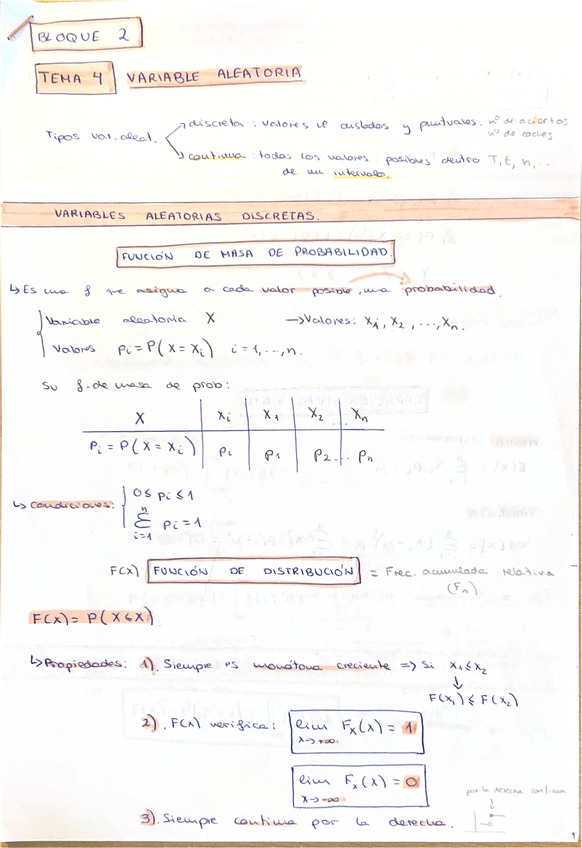 BLOQUE 2
TEMA 4 VARIABLE ALEATORIA
Tipos var. aleat.
discreta: valores nº aislados y puntuales. nº de aciertos
nº de coches
continua: todos los valores posibles dentro T, t, n, ...
de un intervalo.
VARIABLES ALEATORIAS DISCRETAS.
FUNCIÓN DE MASA DE PROBABILIDAD.
↳ Es una f que asigna a cada valor posible, una probabilidad.
Variable aleatoria X → Valores: X₁, X₂, ..., Xn.
Valores pi = P(X = Xi) i = 1, ..., n.
Su f. de masa de prob:
X Xi X₁ X₂ ... Xn
Pi = P(X = Xi) Pi P₁ P₂ ... Pn
↳ Condiciones: 0 ≤ pi ≤ 1
n Σ i=1 pi = 1
F(X) FUNCIÓN DE DISTRIBUCIÓN = Frec. acumulada relativa
(Fn)
F(X) = P(X ≤ X)
↳ Propiedades: 1). Siempre es monótona creciente ⇒ Si x₁ ≤ x₂
↓
F(x₁) ≤ F(x₂)
2). F(x) verifica: lim Fx(x) = 1
x→+∞
lim Fx(x) = 0
x→-∞
por la derecha continua
3). Siempre continua por la derecha.
1